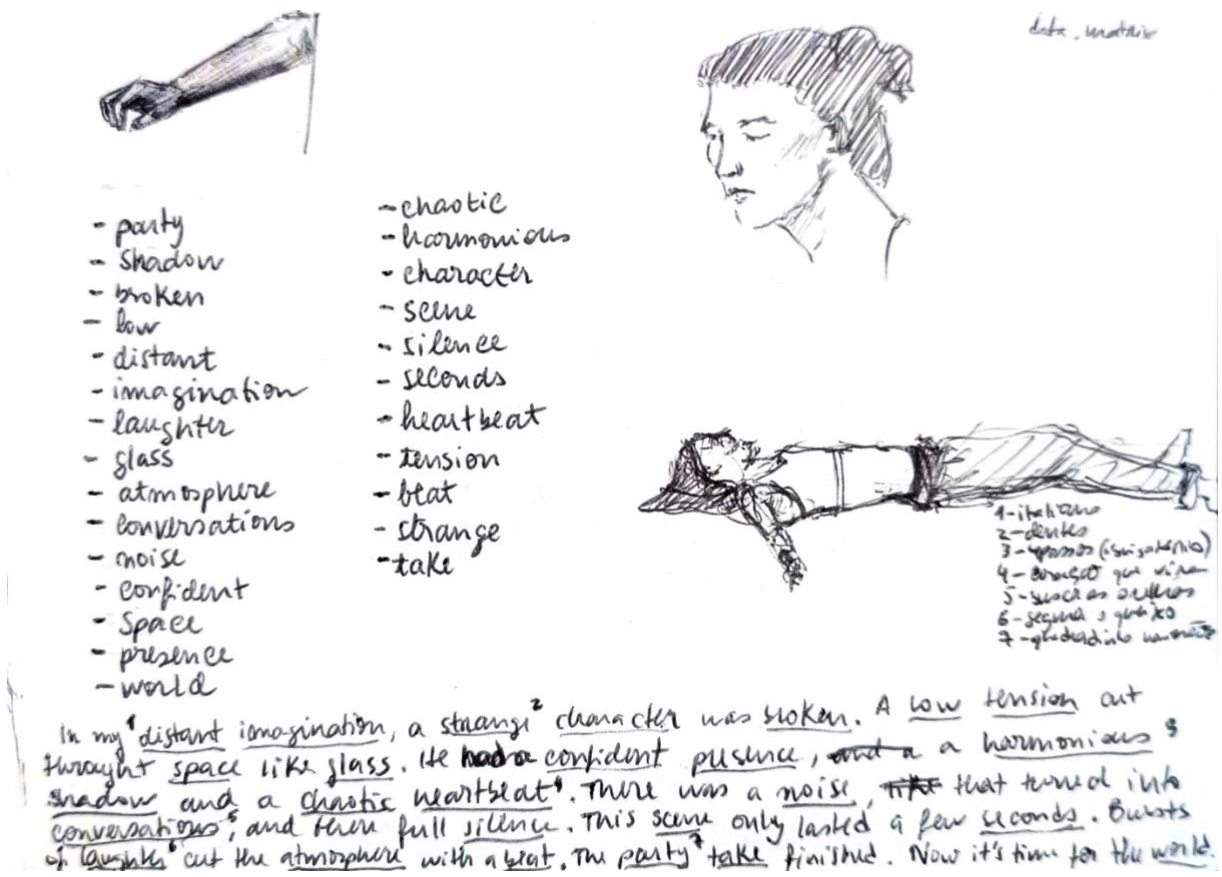 - party
- shadow
- broken
- low
- distant
- imagination
- laughter
- glass
- atmosphere
- conversations
- noise
- confident
- space
- presence
- world
- chaotic
- harmonious
- character
- scene
- silence
- seconds
- heartbeat
- tension
- beat
- strange
- take
1 - italiano
2 - dentes
3 -
4 - coração que
5 - as orelhas
6 - segura o queixo
7 -
In my 1 distant imagination, a strange 2 character was broken. A low tension cut
throught space like glass. He had a confident presence, and a a harmonious 3
shadow and a chaotic heartbeat 4. There was a noise, that turned into
conversations 5, and there full silence. This scene only lasted a few seconds. Bursts
of laughter 6 cut the atmosphere with a beat. The party 7 take finished. Now it's time for the world.